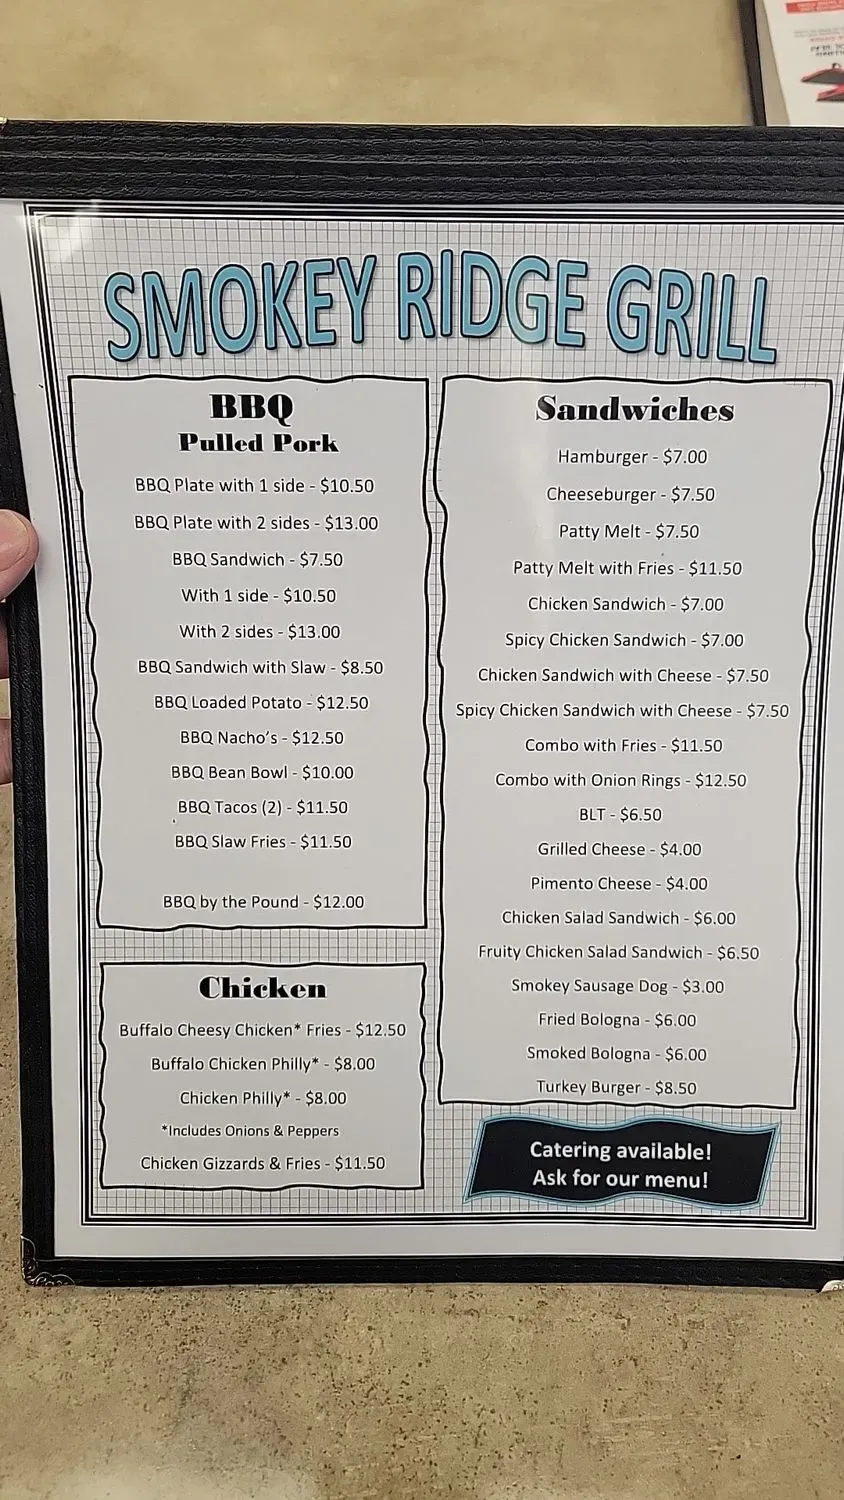 SMOKEY RIDGE GRILL
BBQ
Pulled Pork
BBQ Plate with 1 side - $10.50
BBQ Plate with 2 sides - $13.00
BBQ Sandwich - $7.50
With 1 side - $10.50
With 2 sides - $13.00
BBQ Sandwich with Slaw - $8.50
BBQ Loaded Potato - $12.50
BBQ Nacho's - $12.50
BBQ Bean Bowl - $10.00
BBQ Tacos (2) - $11.50
BBQ Slaw Fries - $11.50
BBQ by the Pound - $12.00
Chicken
Buffalo Cheesy Chicken* Fries - $12.50
Buffalo Chicken Philly* - $8.00
Chicken Philly* - $8.00
*Includes Onions & Peppers
Chicken Gizzards & Fries - $11.50
Sandwiches
Hamburger - $7.00
Cheeseburger - $7.50
Patty Melt - $7.50
Patty Melt with Fries - $11.50
Chicken Sandwich - $7.00
Spicy Chicken Sandwich - $7.00
Chicken Sandwich with Cheese - $7.50
Spicy Chicken Sandwich with Cheese - $7.50
Combo with Fries - $11.50
Combo with Onion Rings - $12.50
BLT - $6.50
Grilled Cheese - $4.00
Pimento Cheese - $4.00
Chicken Salad Sandwich - $6.00
Fruity Chicken Salad Sandwich - $6.50
Smokey Sausage Dog - $3.00
Fried Bologna - $6.00
Smoked Bologna - $6.00
Turkey Burger - $8.50
Catering available!
Ask for our menu!